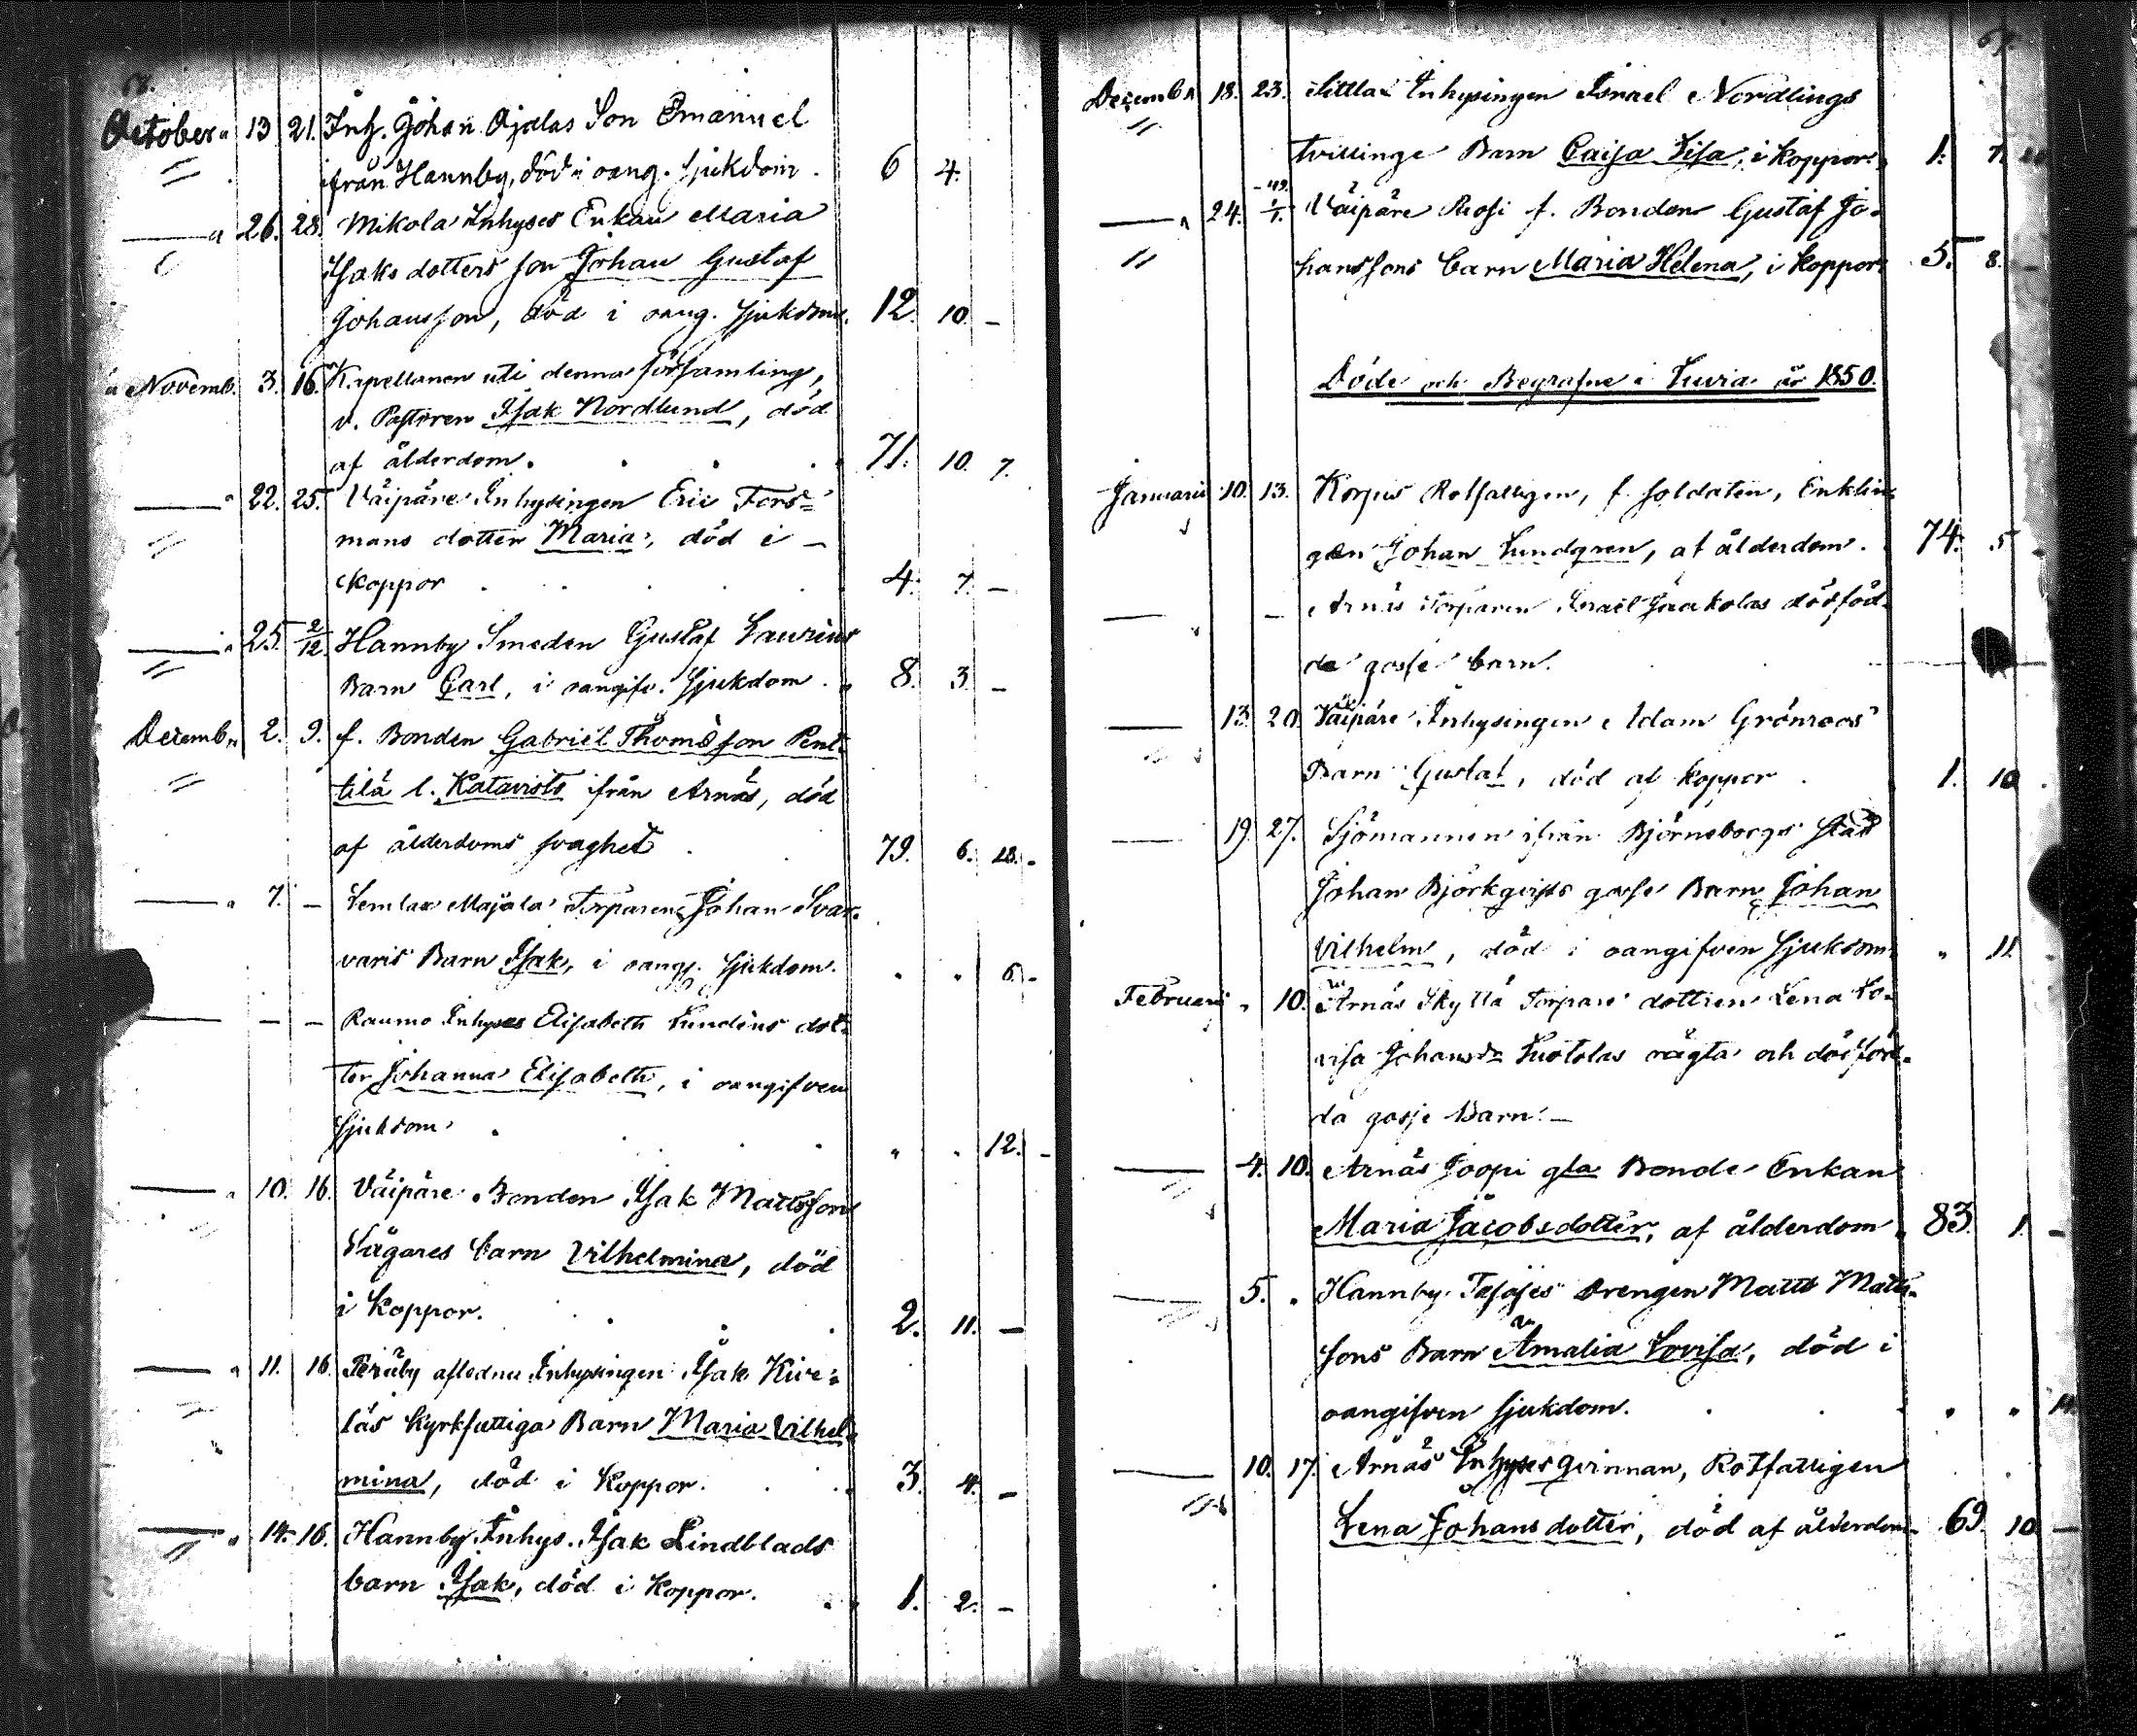 October " 13 21. Inh. Johan Ojalas Son Emanuel
ifrån Hannby, död i oang. sjukdom. 6 4.
" 26. 28. Mikola Inhyses Enkan Maria
Isaks dotters son Johan Gustaf
Johansson, död i oang. sjukdom. 12. 10. –
Novemb. 3. 16. Kapellanen uti denna församling,
v. Pastoren Isak Nordlund, död
af ålderdom. 71. 10. 7.
" 22. 25. Väipäre Inhysingen Eric Fors=
mans dotter Maria, död i –
koppor 4. 7. –
" 25. 2/12. Hannby Smeden Gustaf Laurens
Barn Carl, i oangifv. sjukdom. 8. 3. –
Decemb. 2. 9. f. Bonden Gabriel Thomasson Pent=
tilä l. Katavisto ifrån Arnäs, död
af ålderdoms svaghet 79. 6. 28.
" 7. – Lemlax Majala Torparen Johan Svar=
varis Barn Isak, i oangf. sjukdom. " " 6. –
– – Raumo Inhyses Elisabeth Lundens dot=
ter Johanna Elisabeth, i oangifven
sjukdom. " " 12. –
" 10. 16. Väipäre Bonden Isak Mattsson
Vägares barn Vilhelmina, död
i koppor. 2. 11. –
" 11. 16. Peräby aflednu Inhysingen Isak Kive=
läs kyrkfattiga Barn Maria Vilhel=
mina, död i koppor. 3. 4. –
" 14. 16. Hannby Inhys. Isak Lindblads
barn Isak, död i koppor. 1. 2. –
Decembr 18. 23. Sittlax Inhysingen Israel Nordlings
tvillinge Barn Caisa Lisa, i koppor 1. 7.
" 24. 1/1. -49. Väipäre Rosi f. Bonden Gustaf Jo=
hanssons barn Maria Helena, i koppor 5. 8. –
Döde och Begrafne i Luvia år 1850.
Januarii 10. 13. Korpus Rotfattigen, f. soldaten, Enklin=
gen Johan Lundgren, af ålderdom. 74. 5
– Arnäs Torparen Israel Jaakolas dödföd=
da gosse barn.
13. 20. Väipäre Inhysingen Adam Grönroos
Barn Gustaf, död af koppor 1. 10.
19. 27. Sjömannen ifrån Björneborgs stad
Johan Björkqvists gosse Barn Johan
Vilhelm, död i oangifven sjukdom " 11.
Februarii " 10. Arnäs Skyttä Torpare dottren Lena Lo=
visa Johansdr Tuotolas oägta och dödföd=
da gosse Barn. –
4. 10. Arnäs Joopi gla Bonde Enkan
Maria Jacobsdotter, af ålderdom 83. 1. –
5. " Hannby Drengen Matts Matts=
sons Barn Amalia Lovisa, död i
oangifven sjukdom. " " 14.
10. 17. Arnäs Inhyses qvinnan, Rotfattigen
Lena Johansdotter, död af ålderdom 69. 10 –